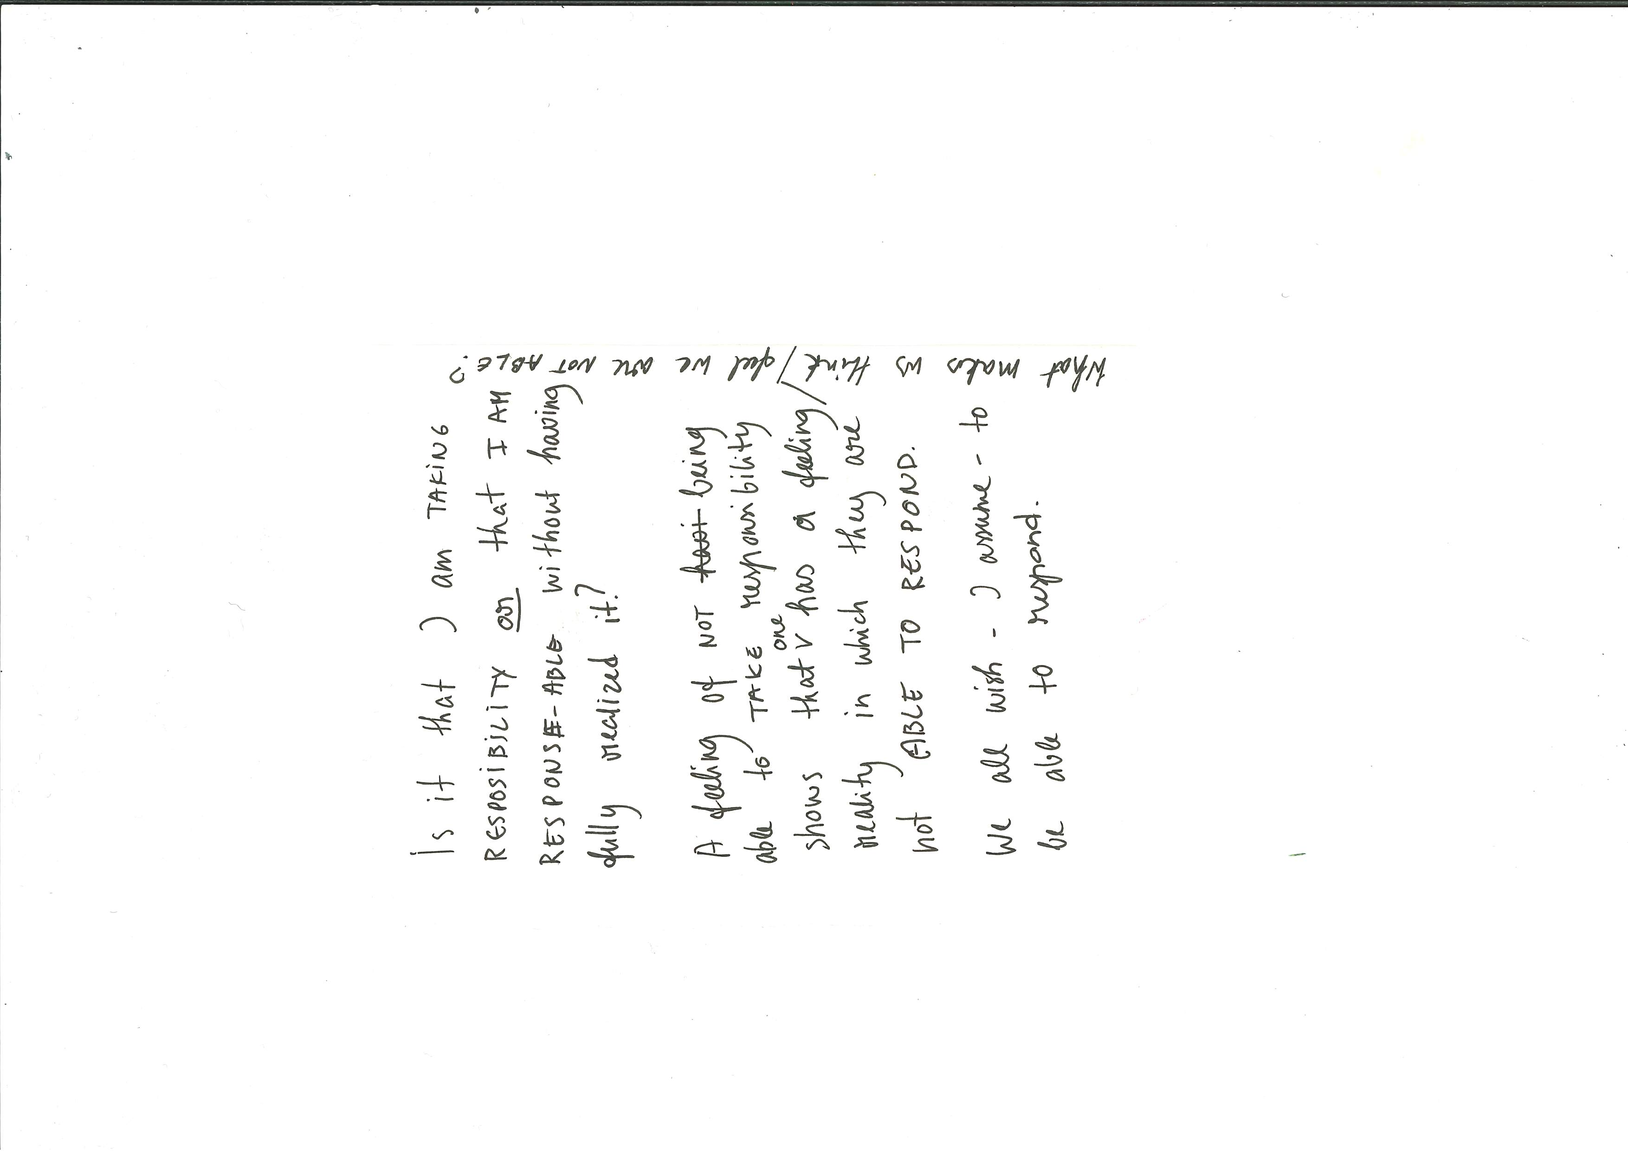 Is it that I am TAKING
RESPOSIBILITY or that I AM
RESPONSE-ABLE without having
fully realized it?
A feeling of NOT being
able to TAKE responsibility
shows that one has a feeling/
reality in which they are
not ABLE TO RESPOND.
We all wish - I assume - to
be able to respond.
What makes us think/feel we are NOT ABLE?